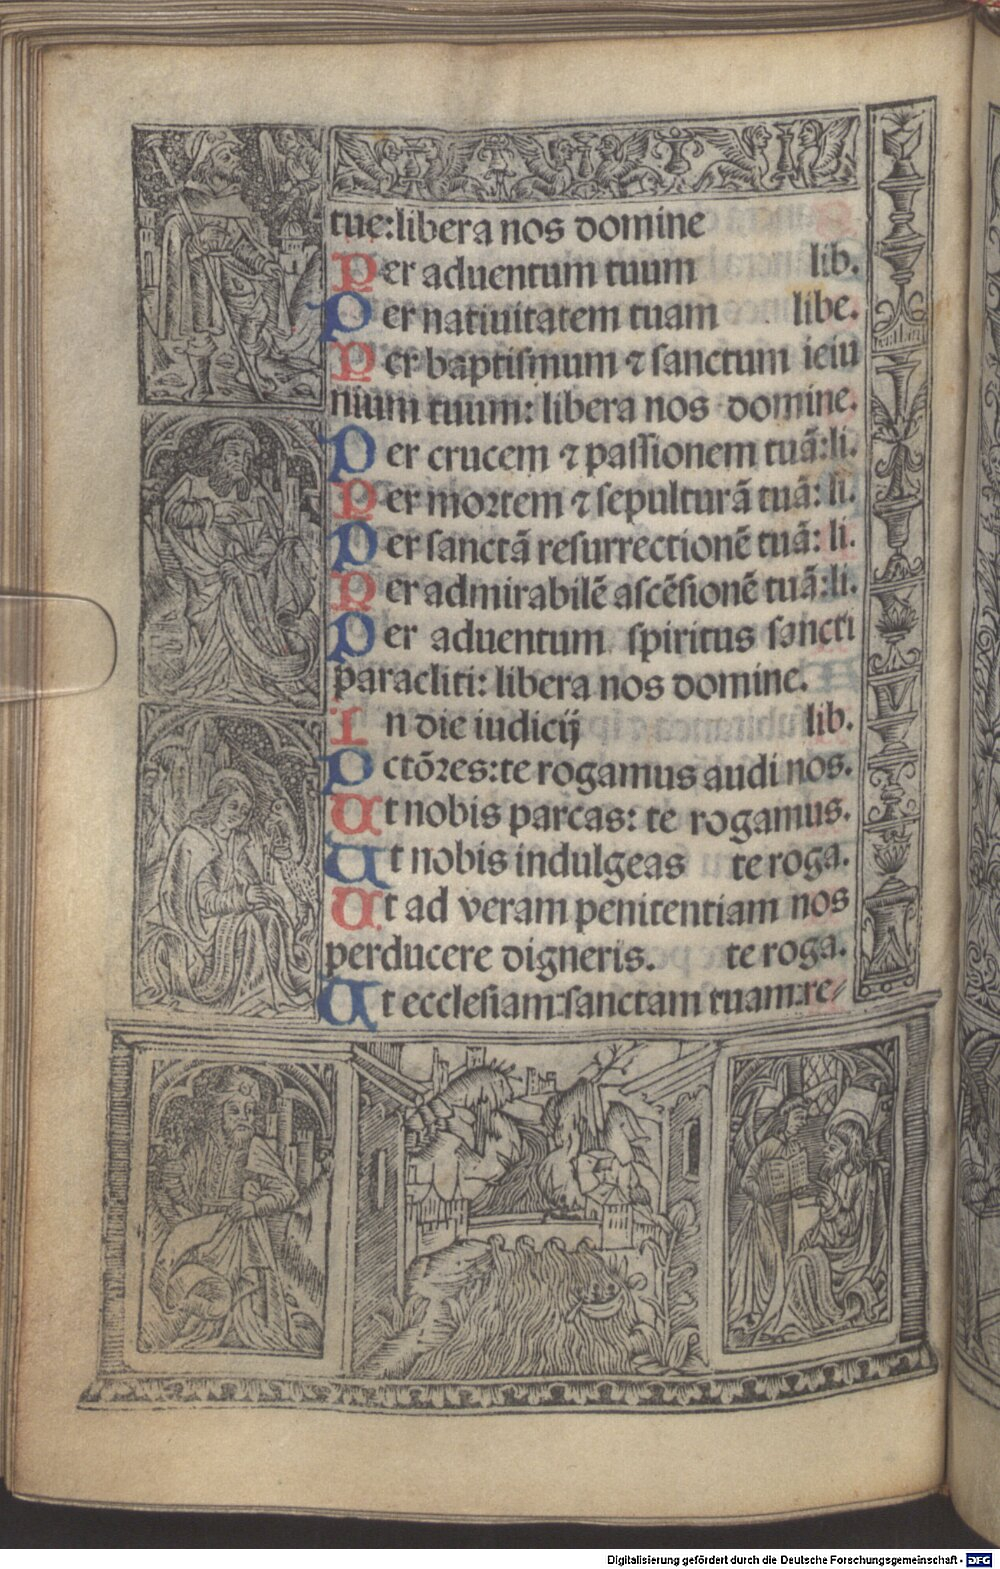 tue:libera nos domine
Per aduentum tuum lib.
Per natiuitatem tuam libe.
Per baptismum ⁊ sanctum ieiu
nium tuum: libera nos domine.
Per crucem ⁊ passionem tuā:li.
Per mortem ⁊ sepulturā tuā: li.
Per sanctā resurrectionē tuā: li.
Per admirabilē ascēsionē tuā:li.
Per aduentum spiritus sancti
paracliti: libera nos domine.
In die iudicij lib.
Pctōres:te rogamus audi nos.
Ut nobis parcas: te rogamus.
Ut nobis indulgeas te roga.
Ut ad veram penitentiam nos
perducere digneris. te roga.
Ut ecclesiam sanctam tuam:re⸗
Digitalisierung gefördert durch die Deutsche Forschungsgemeinschaft - DFG